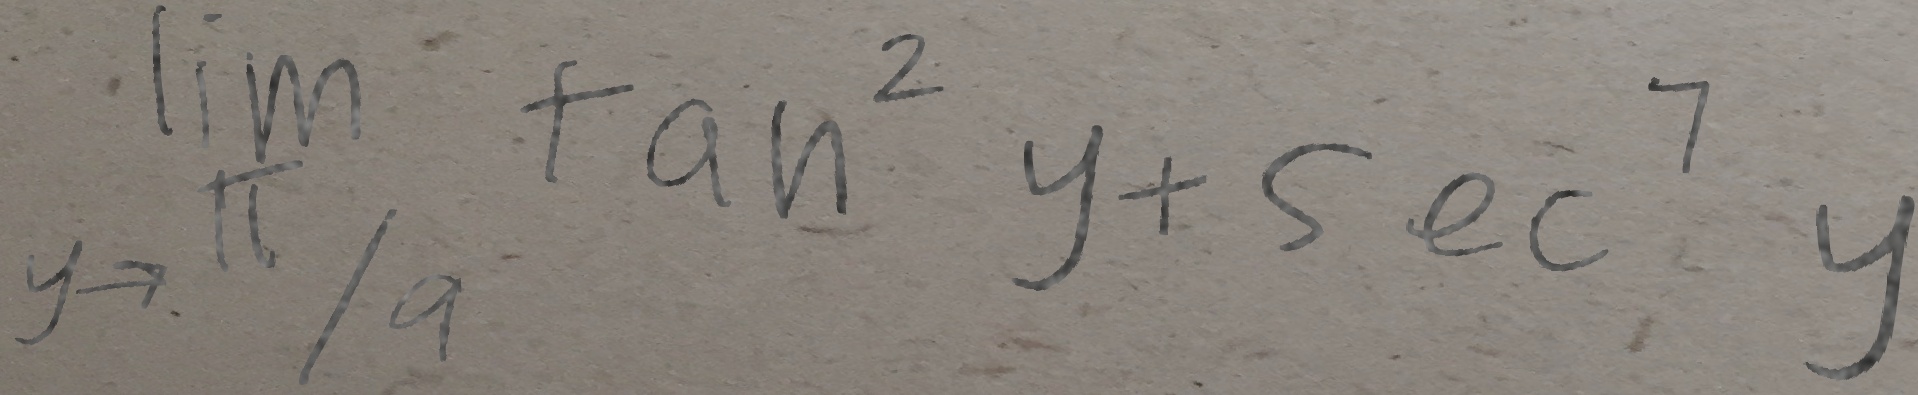 lim_{y→π/9} tan² y + sec⁷ y